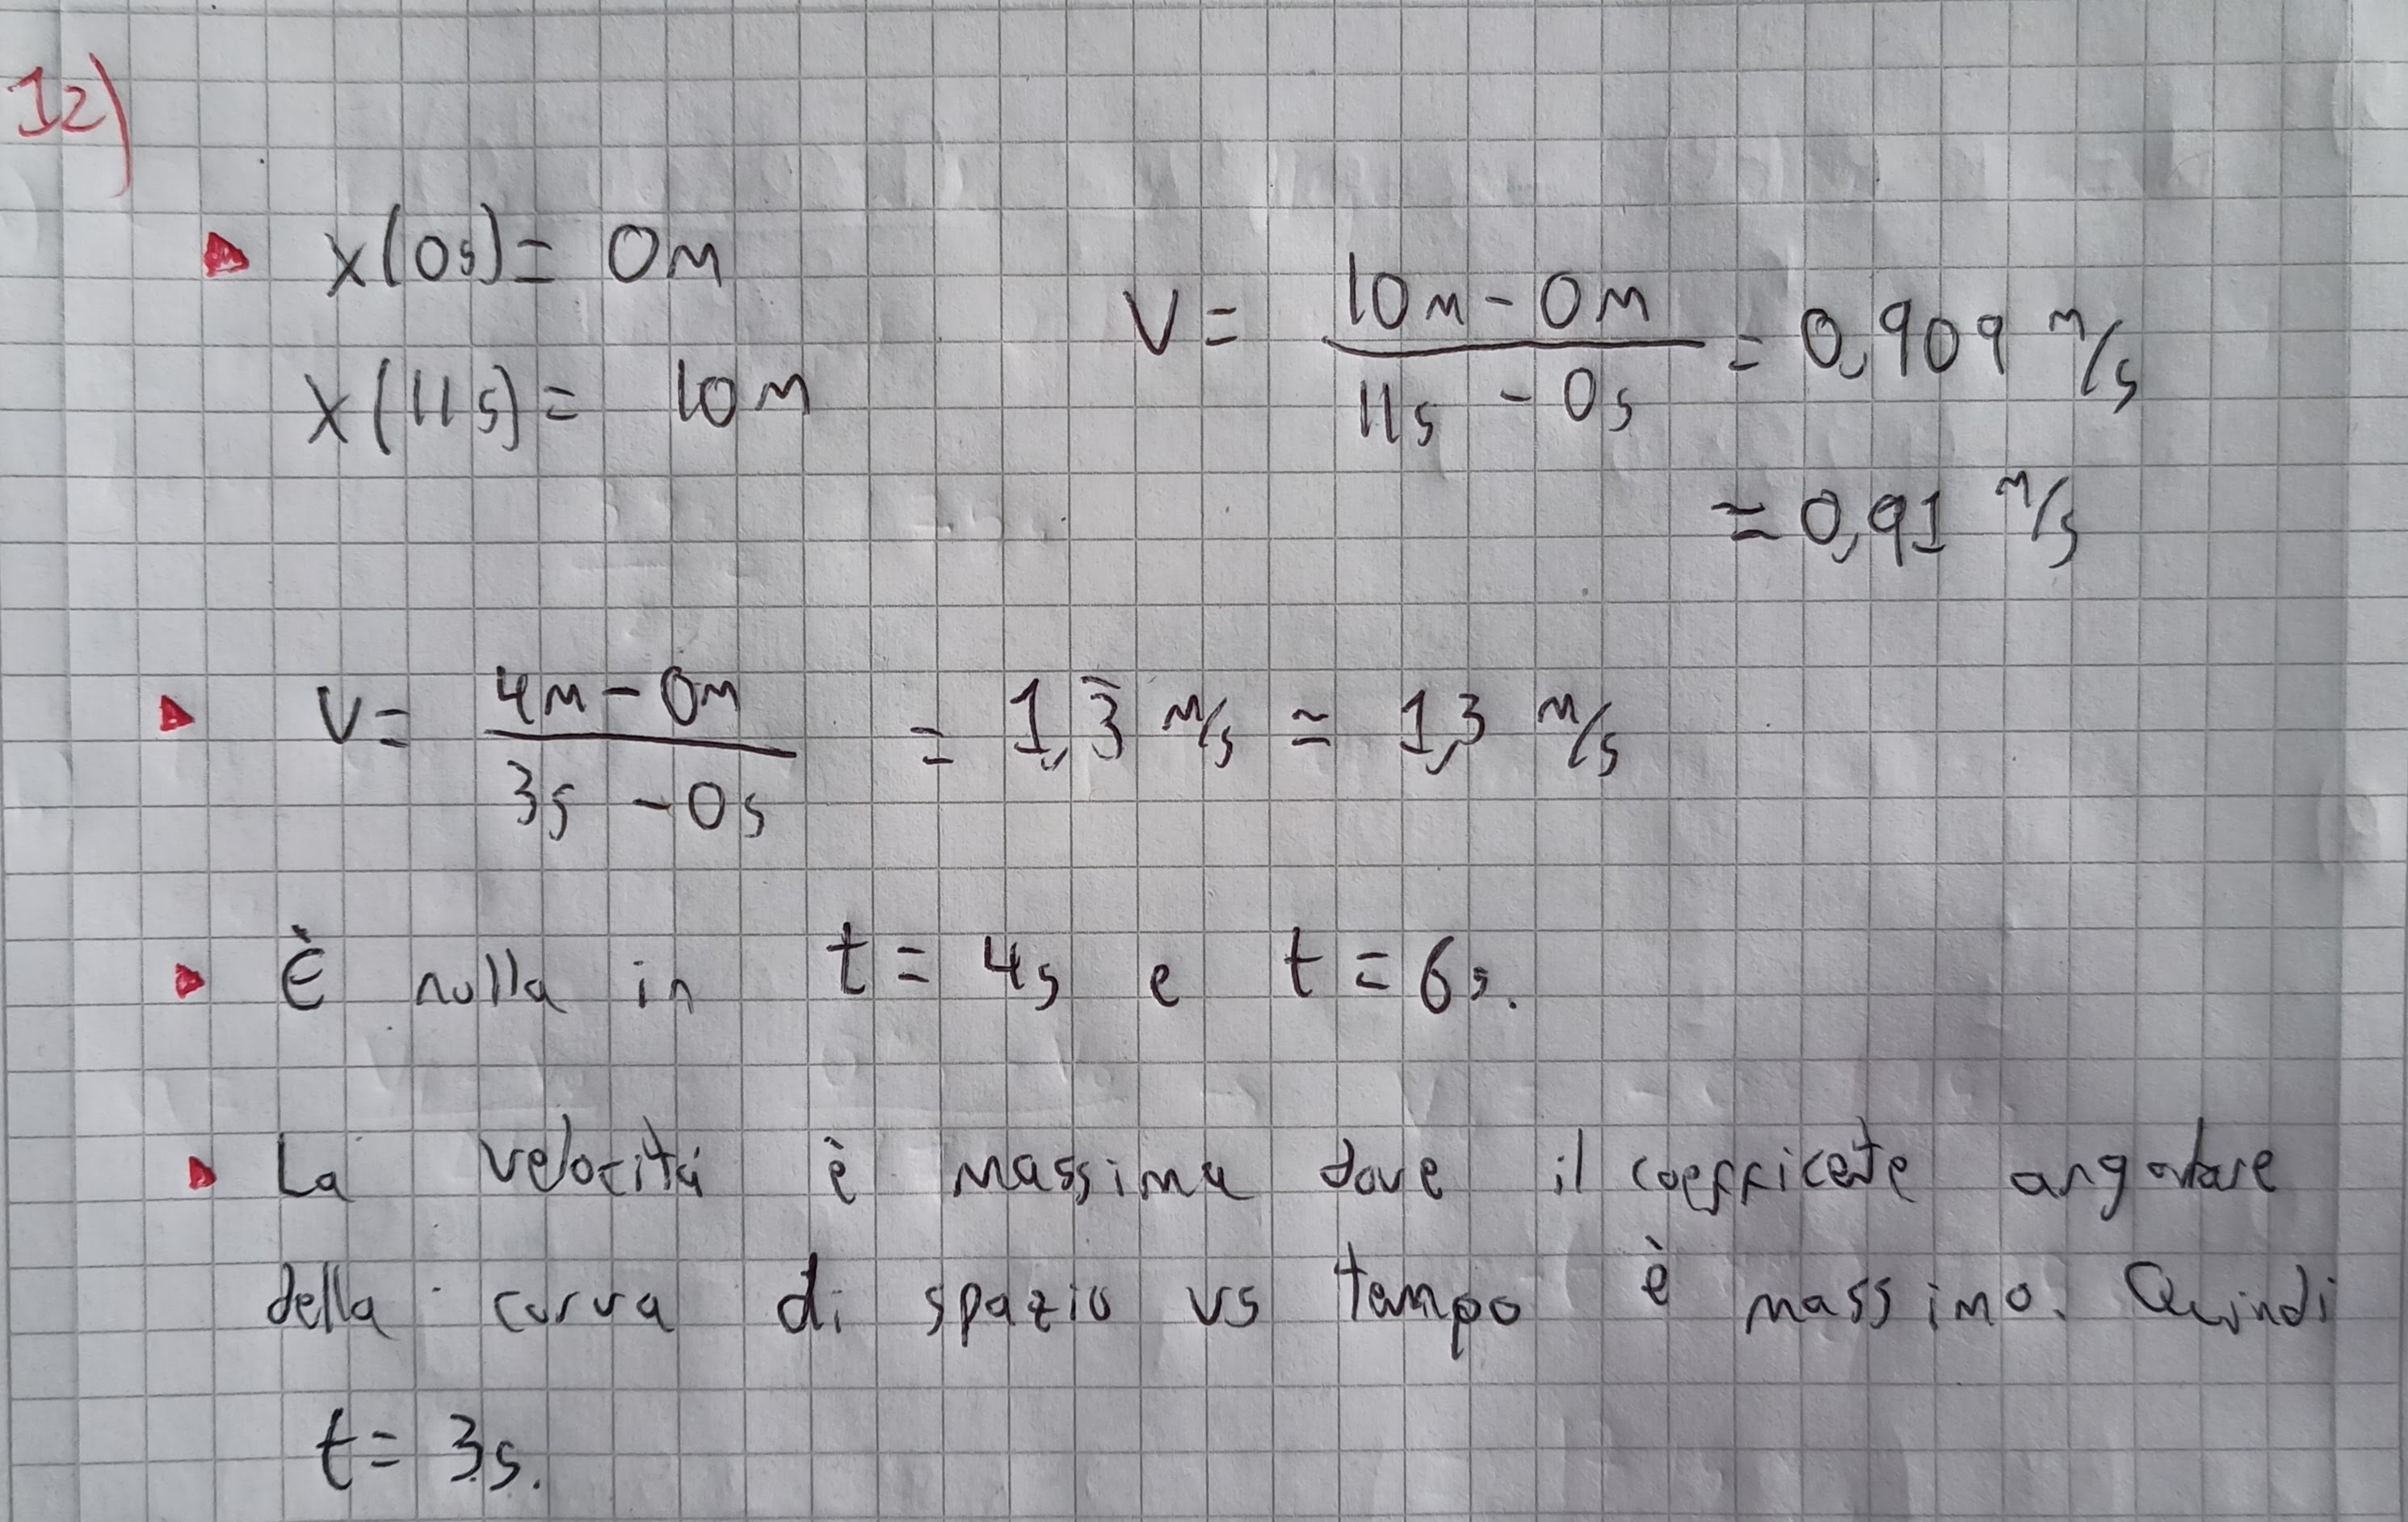 12)
▶ x(0s) = 0m
x(11s) = 10m
V = (10m - 0m)/(11s - 0s) = 0,909 m/s
≃ 0,91 m/s
▶ V = (4m - 0m)/(3s - 0s) = 1,3̄ m/s ≃ 1,3 m/s
▶ È nulla in t = 4s e t = 6s.
▶ La velocitá è massima dove il coefficente angolare
della curva di spazio vs tempo è massimo. Quindi
t = 3s.